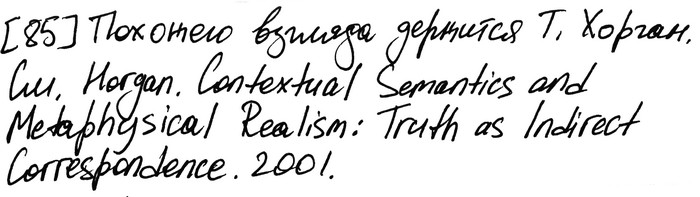 [85] Похожего взгляда держится Т. Хорган.
См. Horgan. Contextual Semantics and
Metaphysical Realism: Truth as Indirect
Correspondence. 2001.